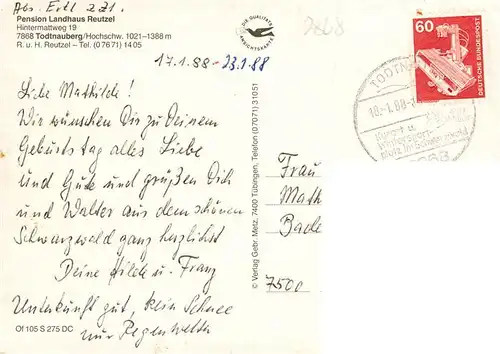 Abs. Ertl 221.
Pension Landhaus Reutzel
Hintermattweg 19
7868 Todtnauberg/Hochschw. 1021–1388 m
R. u. H. Reutzel – Tel. (07671) 1405
17.1.88 – 23.1.88
Liebe Mathilde!
Wir wünschen Dir zu Deinem
Geburtstag alles Liebe
und Gute und grüßen Dich
und Walter aus dem schönen
Schwarzwald ganz herzlichst
Deine Hilde u. Franz
Unterkunft gut, kein Schnee
nur Regenwetter
Of 105 S 275 DC
© Verlag Gebr. Metz, 7400 Tübingen, Telefon (07071) 31051
DIE QUALITÄTS
ANSICHTSKARTE
7868
60
DEUTSCHE BUNDESPOST
TODTN
18.-1.88-1
Kurort u.
Wintersport-
platz im Schwarzwald
7868
Frau
Math
Bade
7500